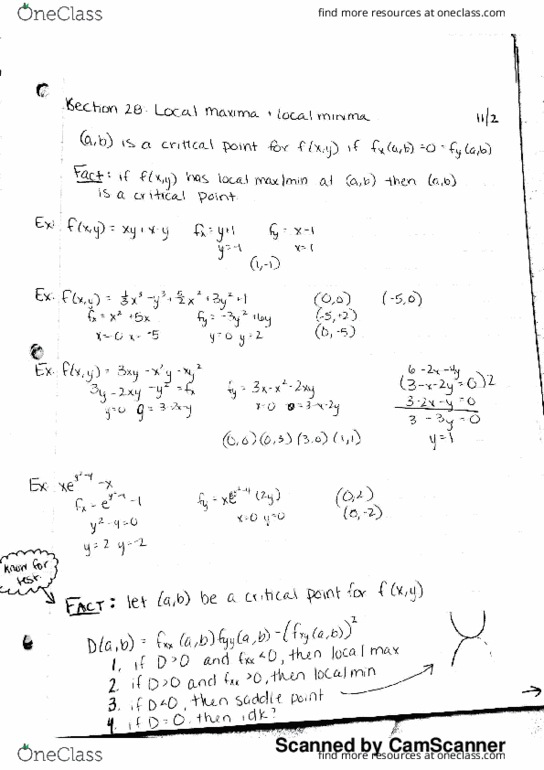 OneClass
find more resources at oneclass.com
Section 28. Local maxima + local minima
11/2
(a,b) is a critical point for f(x,y) if fx(a,b)=0=fy(a,b)
Fact: if f(x,y) has local max/min at (a,b) then (a,b)
is a critical point
Ex: f(x,y) = xy+x-y fx=y+1 fy=x-1
y=-1 x=1
(1,-1)
Ex: f(x,y) = ⅓x³-y³+5/2x²+3y²+1 (0,0) (-5,0)
fx=x²+5x fy=-3y²+6y (-5,+2)
x=0 x=-5 y=0 y=2 (0,-5)
Ex: f(x,y) = 3xy-x²y-xy² 6-2x-4y
3y-2xy-y²=fx fy=3x-x²-2xy (3-x-2y=0)2
y=0 y=3-2x-y x=0 0=3-x-2y 3-2x-y=0
3-3y=0
(0,0)(0,3)(3,0)(1,1) y=1
Ex xe^(y²-4)-x
fx=e^(y²-4)-1 fy=xe^(y²-4)(2y) (0,2)
y²-4=0 x=0 y=0 (0,-2)
y=2 y=-2
know for
test.
FACT: let (a,b) be a critical point for f(x,y)
D(a,b) = fxx(a,b)fyy(a,b)-(fxy(a,b))²
1. if D>0 and fxx<0, then local max
2. if D>0 and fxx>0, then local min
3. if D<0, then saddle point
4. if D=0, then idk?
Scanned by CamScanner
OneClass
find more resources at oneclass.com